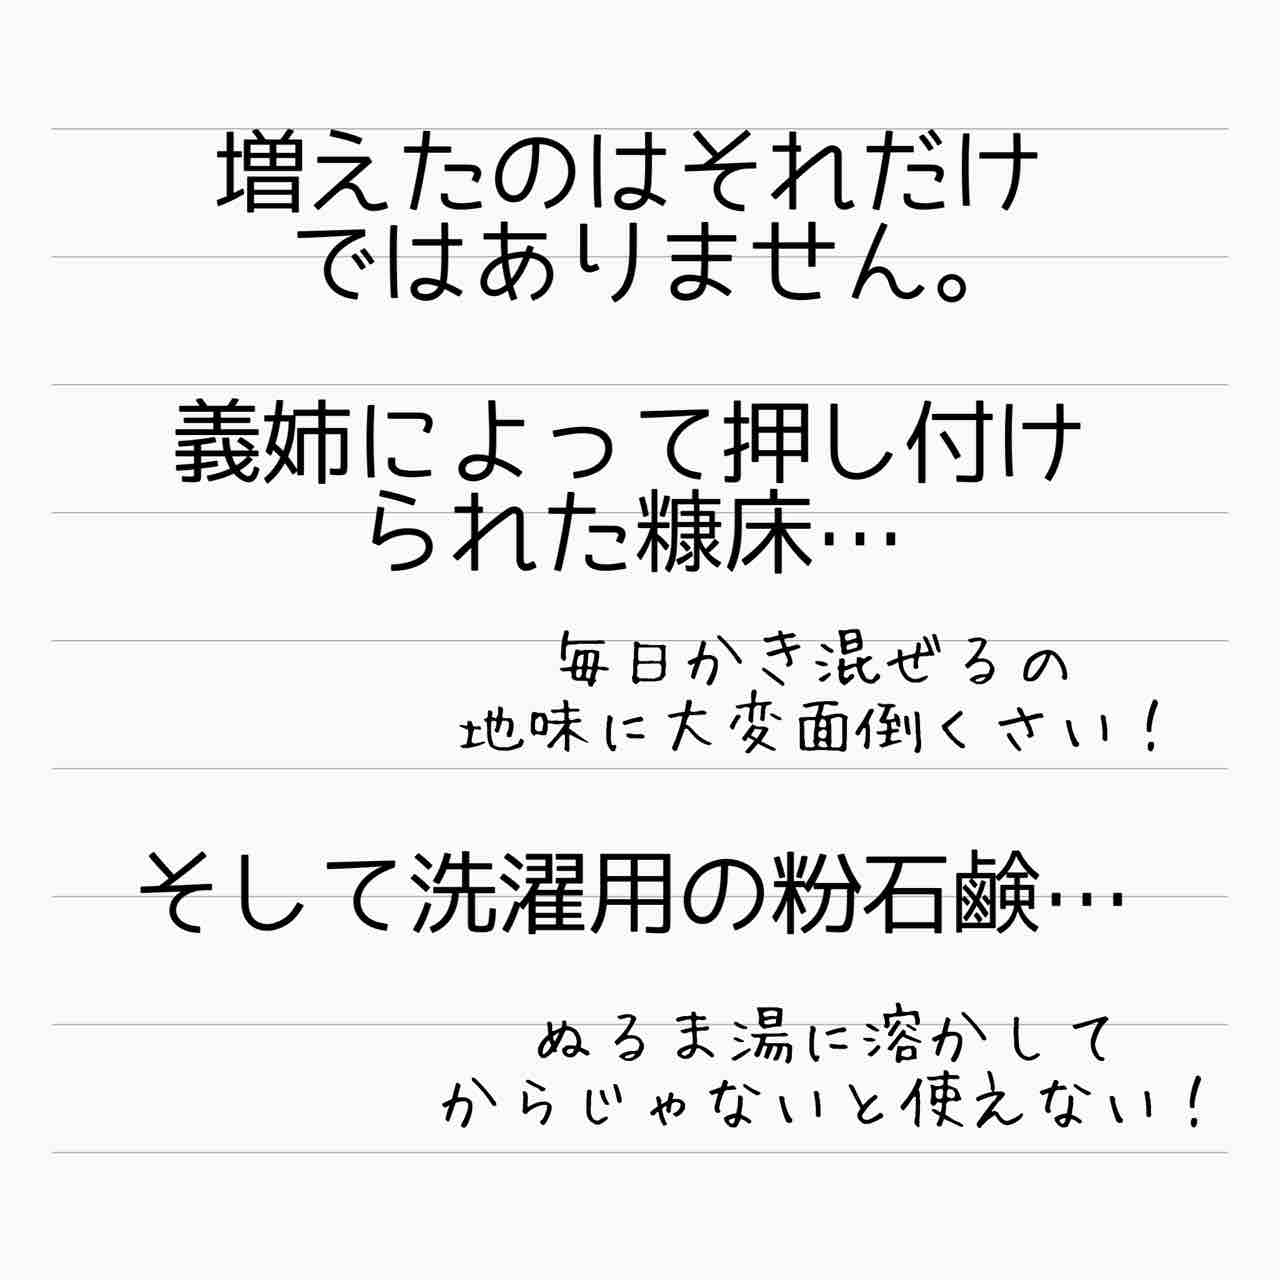 増えたのはそれだけ
ではありません。
義姉によって押し付け
られた糠床…
毎日かき混ぜるの
地味に大変面倒くさい！
そして洗濯用の粉石鹸…
ぬるま湯に溶かして
からじゃないと使えない！